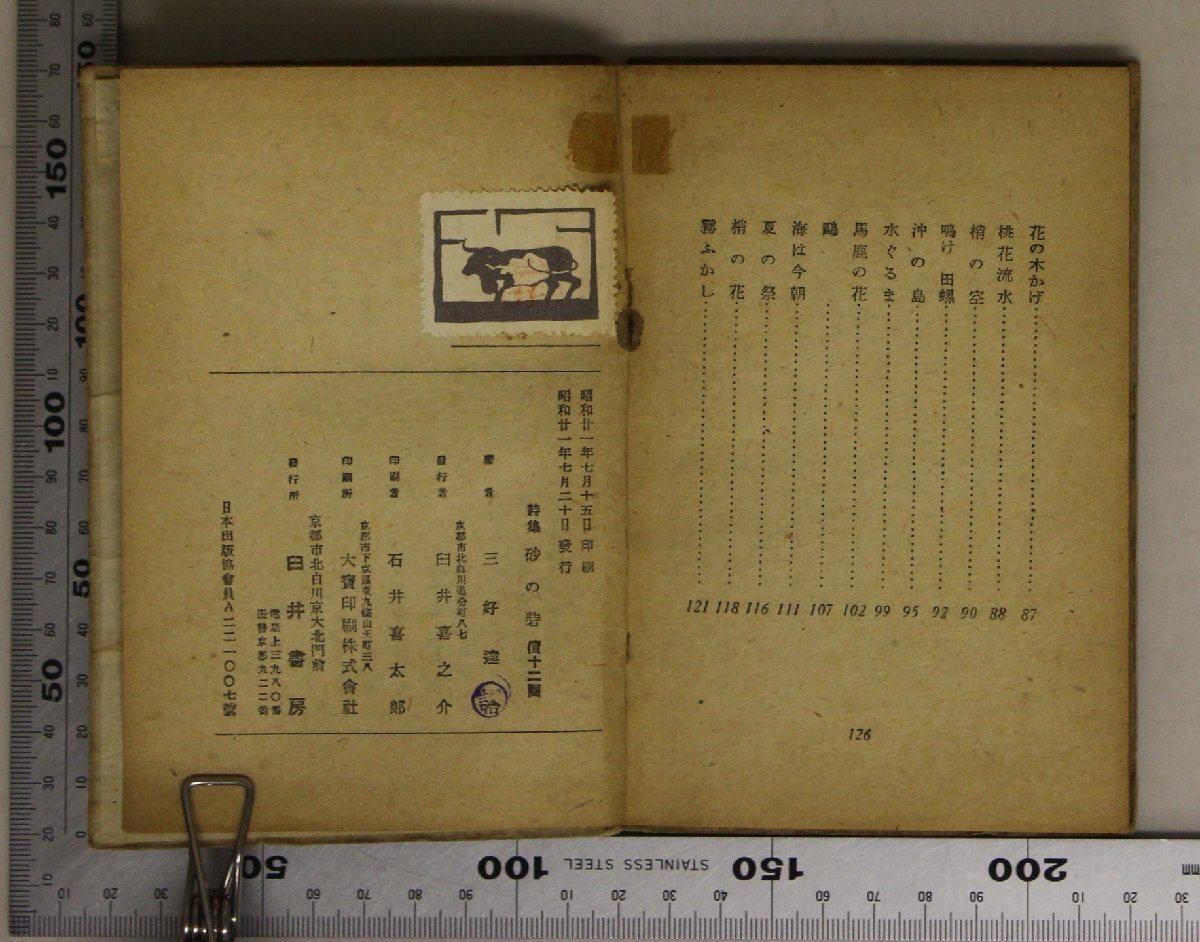 花の木かげ 87
桃花流水 88
梢の空 90
鳴け田螺 92
沖の島 95
水ぐるま 99
馬鹿の花 102
鷗 107
海は今朝 111
夏の祭 116
梢の花 118
霧ふかし 121
126
昭和廿一年七月十五日印刷
昭和廿一年七月二十日發行
詩集 砂の砦 價十二圓
著者 三好達治
京都市北白川追分町八七
發行者 臼井喜之介
印刷者 石井喜太郎
京都市下京區東九條山王町三八
印刷所 大寶印刷株式會社
京都市北白川京大北門前
發行所 臼井書房
電話上三九八〇番
振替京都九二二番
日本出版協會員A二二一〇〇七號
STAINLESS STEEL
50
100
150
200
mm
150
100
50